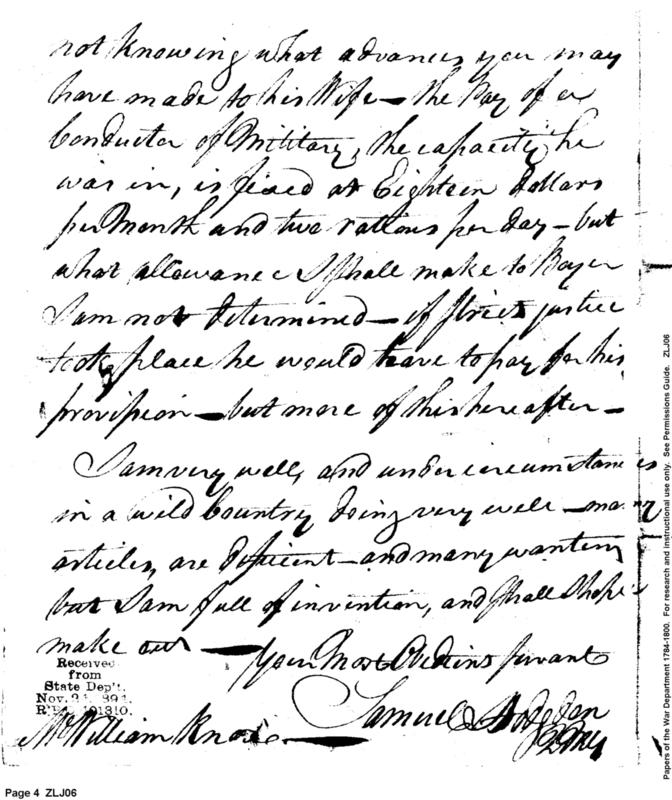 not knowing what advances you may
have made to his Wife — the Pay of a
Conductor of Military, the capacity he
was in, is fixed at Eighteen Dollars
per Month and two rations per day — but
what allowance I shall make to Boyer
I am not determined — if strict justice
took place he would have to pay for his
provision — but more of this hereafter —
I am very well, and under circumstances
in a wild Country doing very well — many
articles, are deficient — and many wanting
but I am full of invention, and shall I hope
make out — Your Most Obedient servant
Received
from
State Dep't.
Samuel Hodgdon
QMG
Mr William Knox —
Papers of the War Department 1784-1800. For research and instructional use only. See Permissions Guide. ZLJ06
Page 4 ZLJ06